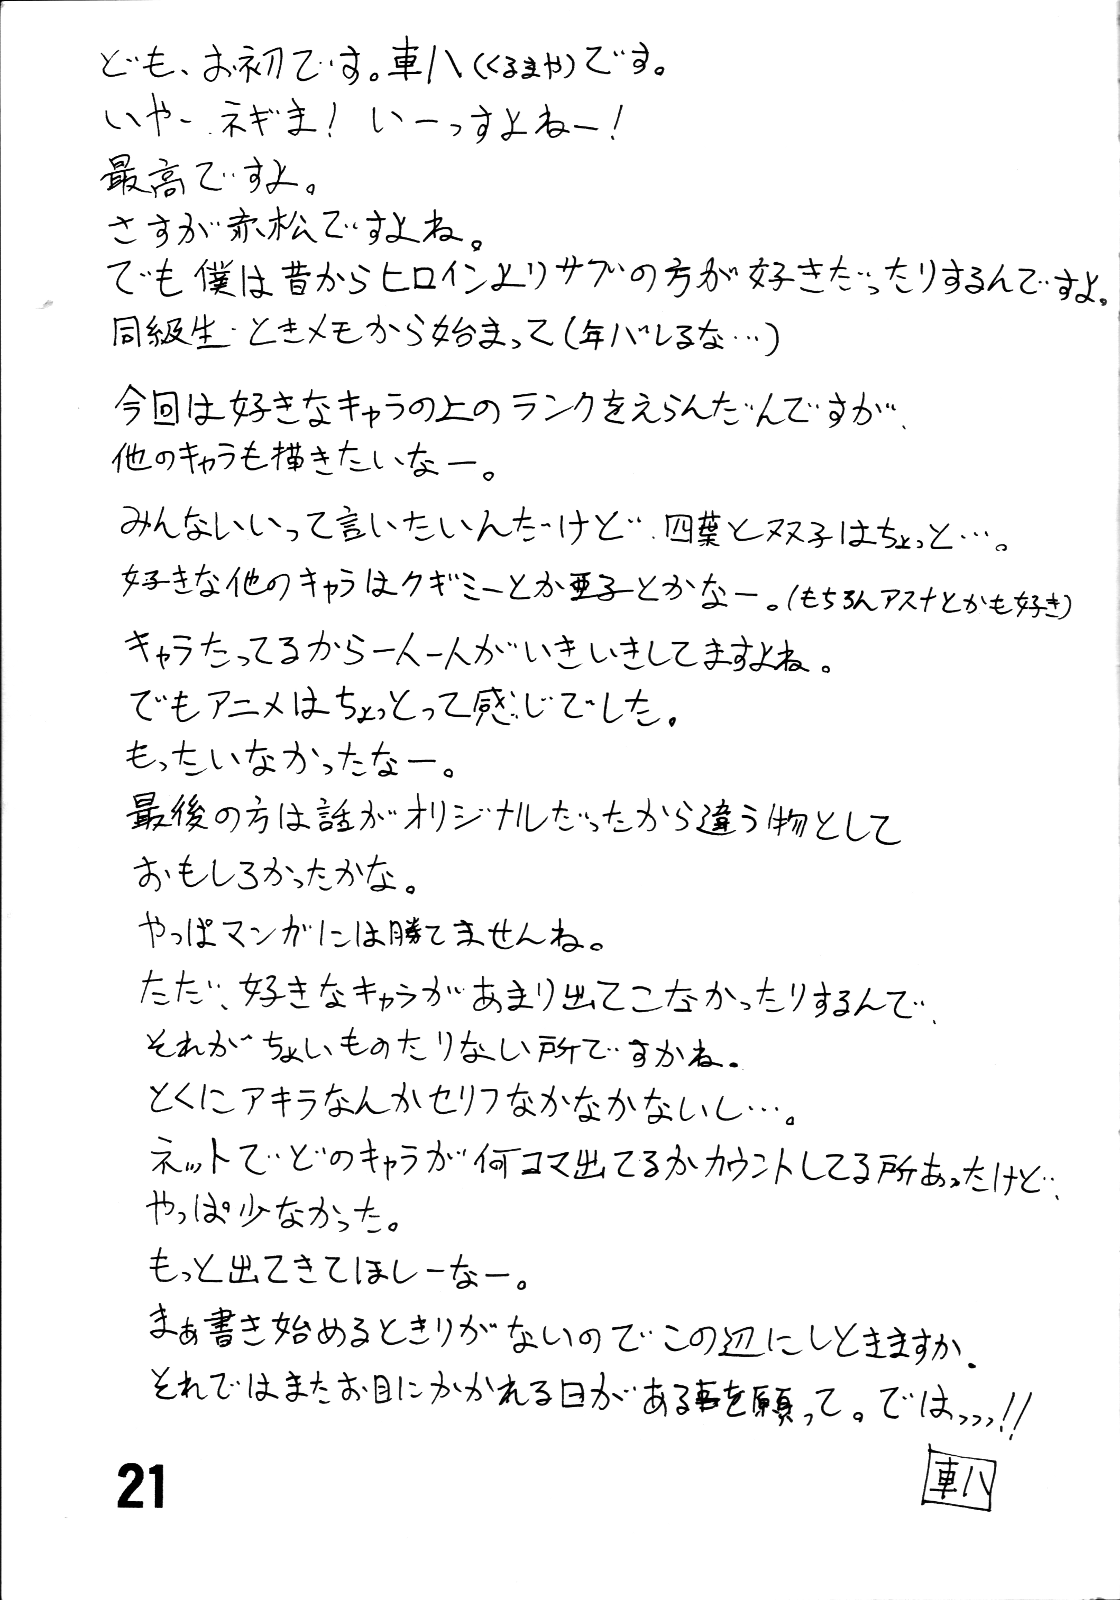 ども、お初です。車八(くるまや)です。
いやー、ネギま!いーっすよねー!
最高ですよ。
さすが赤松ですよね。
でも僕は昔からヒロインよりサブの方が好きだったりするんですよ。
同級生・ときメモから始まって(年バレるな…)
今回は好きなキャラの上のランクをえらんだんですが、
他のキャラも描きたいなー。
みんないいって言いたいんだけど、四葉と双子はちょっと…。
好きな他のキャラはクギミーとか亜子とかなー。(もちろんアスナとかも好き)
キャラたってるから一人一人がいきいきしてますよね。
でもアニメはちょっとって感じでした。
もったいなかったなー。
最後の方は話がオリジナルだったから違う物として
おもしろかったかな。
やっぱマンガには勝てませんね。
ただ、好きなキャラがあまり出てこなかったりするんで、
それがちょいものたりない所ですかね。
とくにアキラなんかセリフなかなかないし…。
ネットでどのキャラが何コマ出てるかカウントしてる所あったけど、
やっぱ少なかった。
もっと出てきてほしーなー。
まぁ書き始めるときりがないのでこの辺にしときますか。
それではまたお目にかかれる日がある事を願って。ではっっっ!!
車八
21